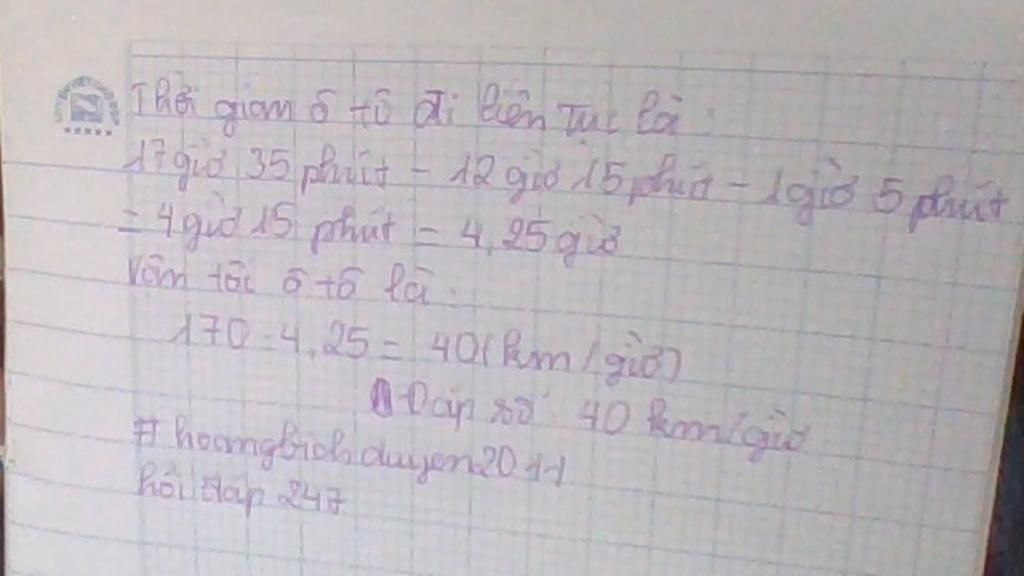 Thời gian ô tô đi liên tục là:
17 giờ 35 phút - 12 giờ 15 phút - 1 giờ 5 phút
= 4 giờ 15 phút = 4,25 giờ
Vân tôi ô tô là:
170 : 4,25 = 40 (km/giờ)
Đáp số: 40 km/giờ
# hoangbichduyen2011
hỏi đáp 247